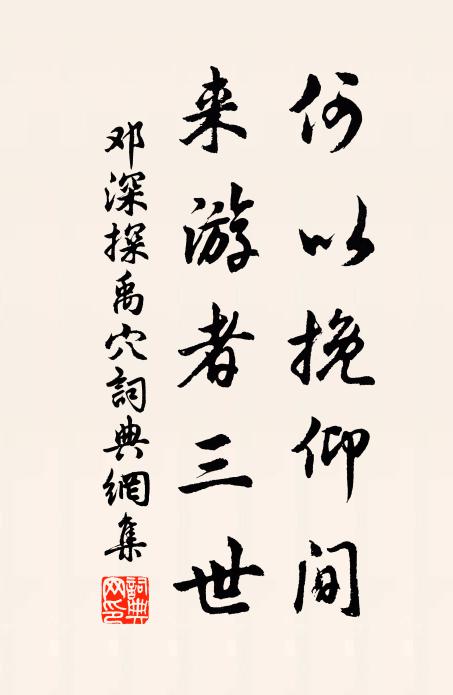 何以挽仰间
来游者三世
邓深探禹穴詞典網集
詞典网印